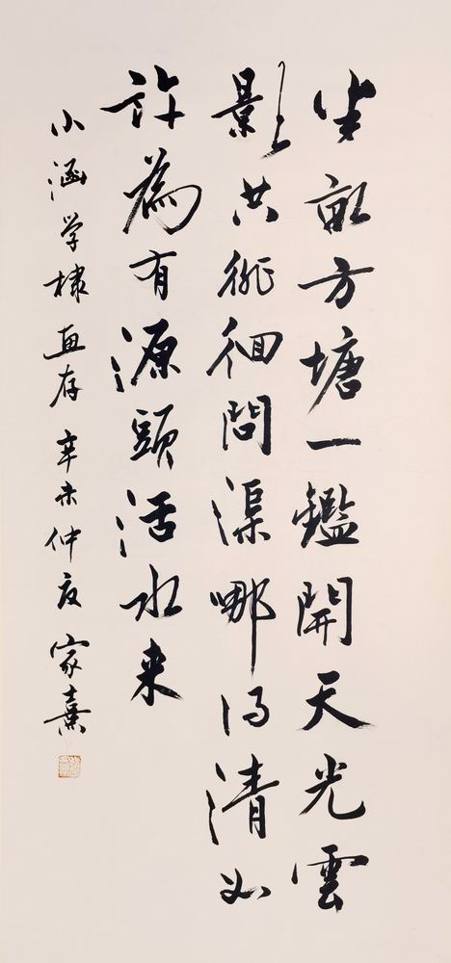 半亩方塘一鑑開天光雲
影共徘徊問渠哪得清如
許為有源頭活水来
小涵学棣画存辛未仲夏家熹